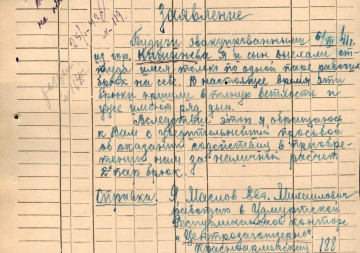 Заявление
Будучи эвакуированными 6/VII 41г.
из гор. Кишинева я и сын выехали от-
туда имея только по одной паре рабочих
брюк на себе. В настоящее время эти
брюки пришли в полную ветхость и
уже имеют ряд дыр.
Вследствие этого я обращаюсь
к Вам с убедительнейшей просьбой
об оказании содействия в приобре-
тении нам за наличный расчет
2х пар брюк.
Справка. Я Маслов Евг. Михайлович
работаю в Удмуртской
Республиканской конторе
"Центрозаготзерно"
Красноармейская 188